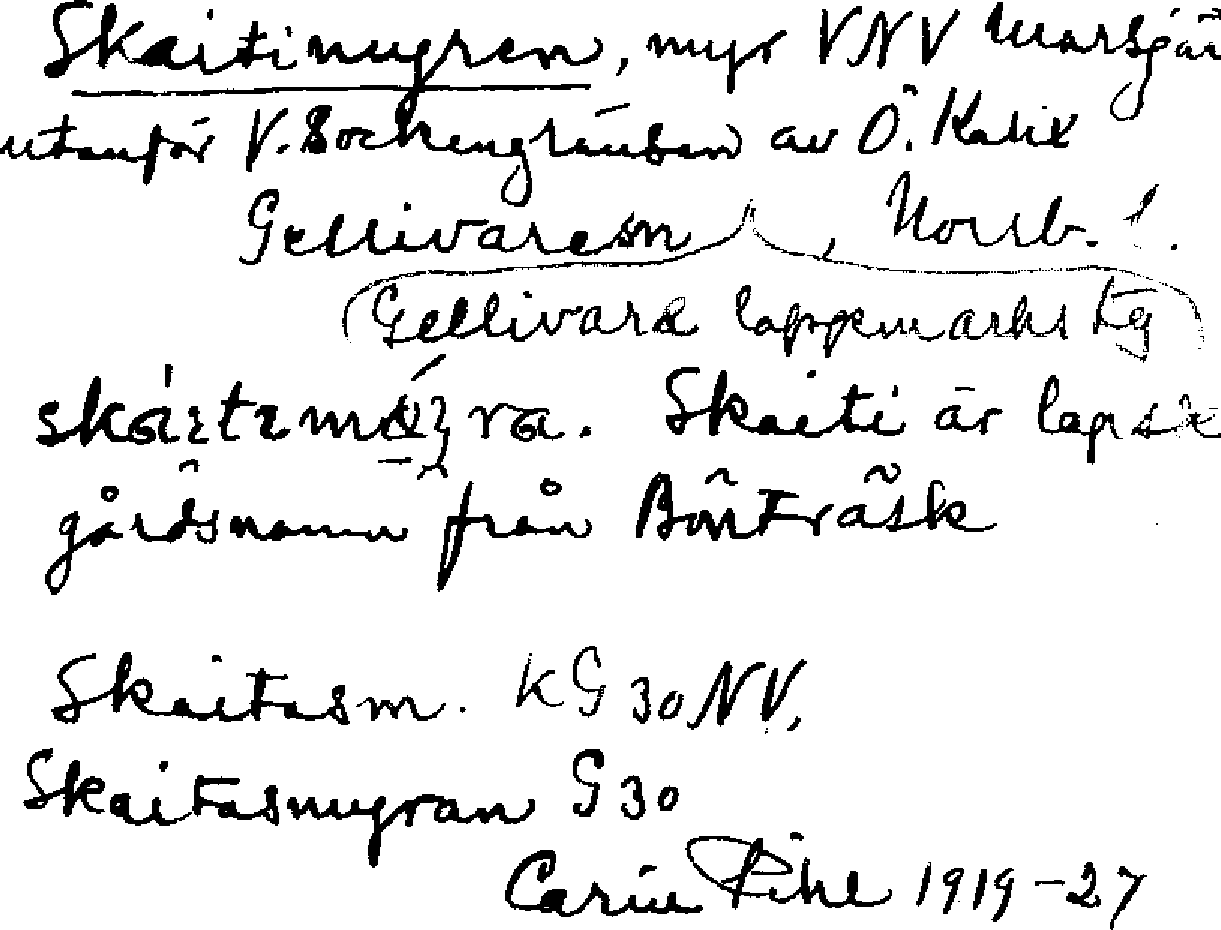 Skaitimyren, myr VNV Marsjär
utanför V. Sockengränsen av Ö. Kalix
Gellivare sn, Norrb. l.
Gellivare lappmarks tg
Skaiti är lapsk
gårdsnamn från Bönträsk
Skaitasm. KG 30 NV,
Skaitasmyran G 30
Carin Pihl 1919-27